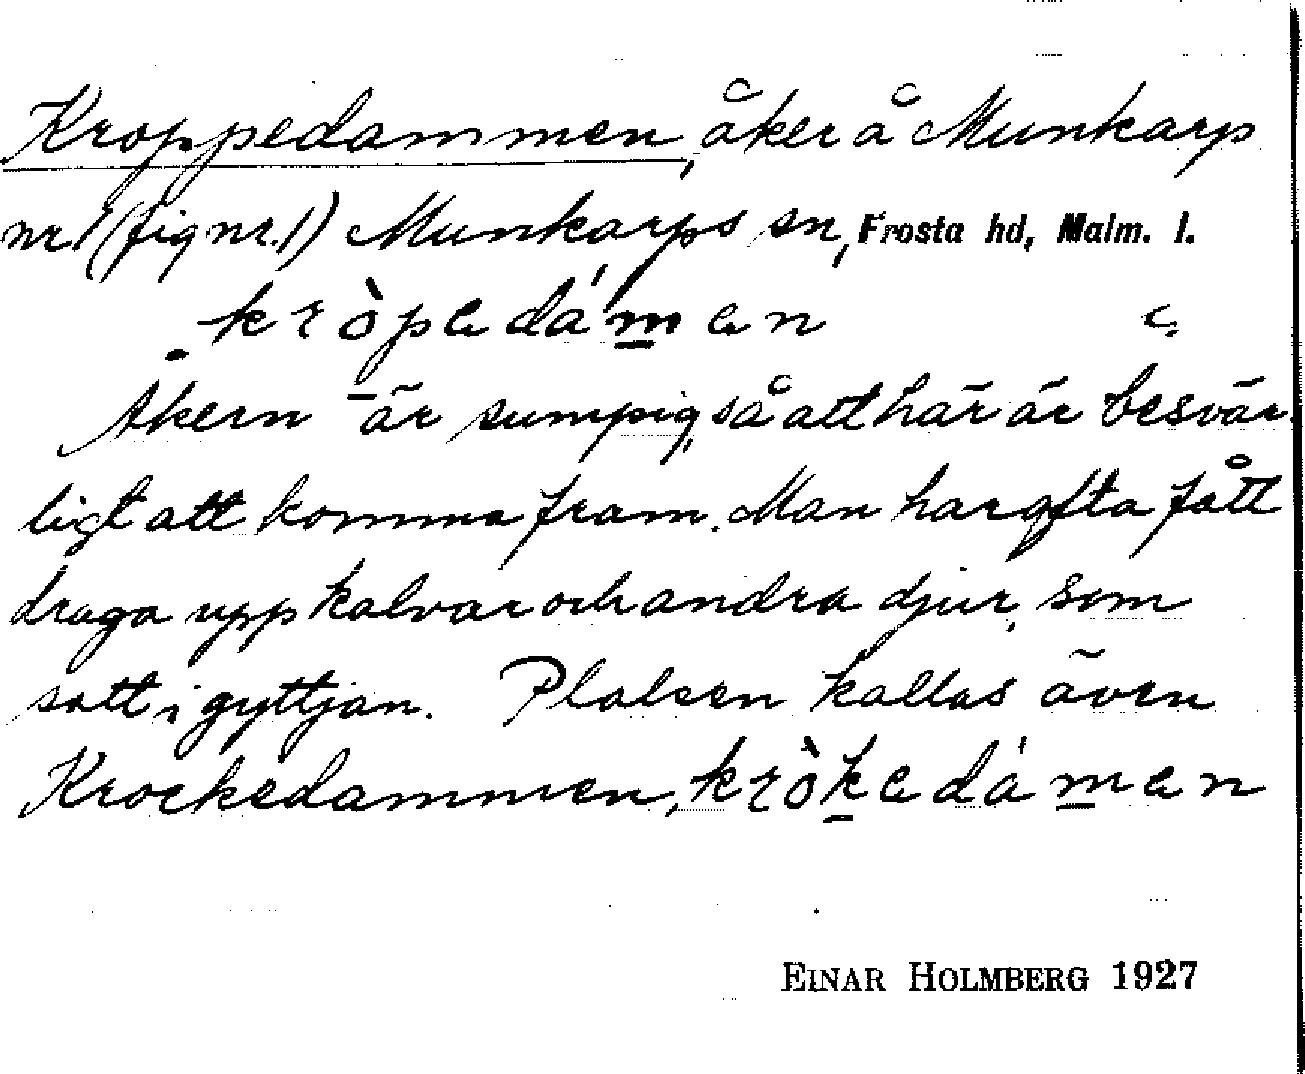 Kroppedammen, åker å Munkarp
nr 1 (fig nr. 1) Munkarps sn, Frosta hd, Malm. l.
kròpedámen
Åkern är sumpig, så att här är besvär-
ligt att komma fram. Man har ofta fått
draga upp kalvar och andra djur, som
satt i gyttjan. Platsen kallas även
Krockedammen, kròkedámen
EINAR HOLMBERG 1927